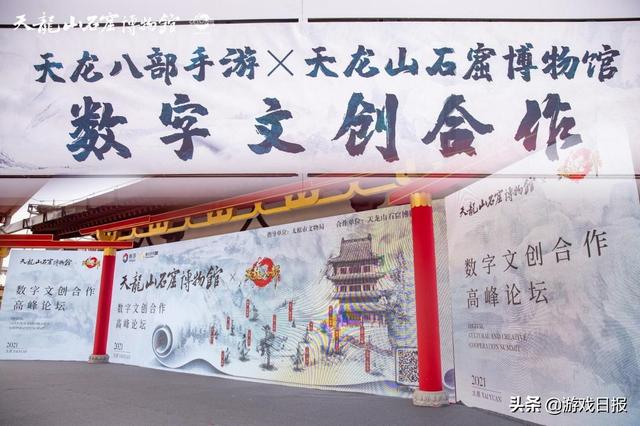 天龍山石窟博物館
天龙八部手游×天龙山石窟博物馆
数字文创合作
指导单位：太原市文物局
天龍山石窟博物館 ×
数字文创合作
高峰论坛
2021
太原 TAIYUAN
天龍山石窟博物館
数字文创合作
高峰论坛
2021
太原 TAIYUAN
数字文创合作
高峰论坛
DIGITAL
CULTURAL AND CREATIVE
COOPERATION SUMMIT
2021
太原 TAIYUAN
头条 @游戏日报